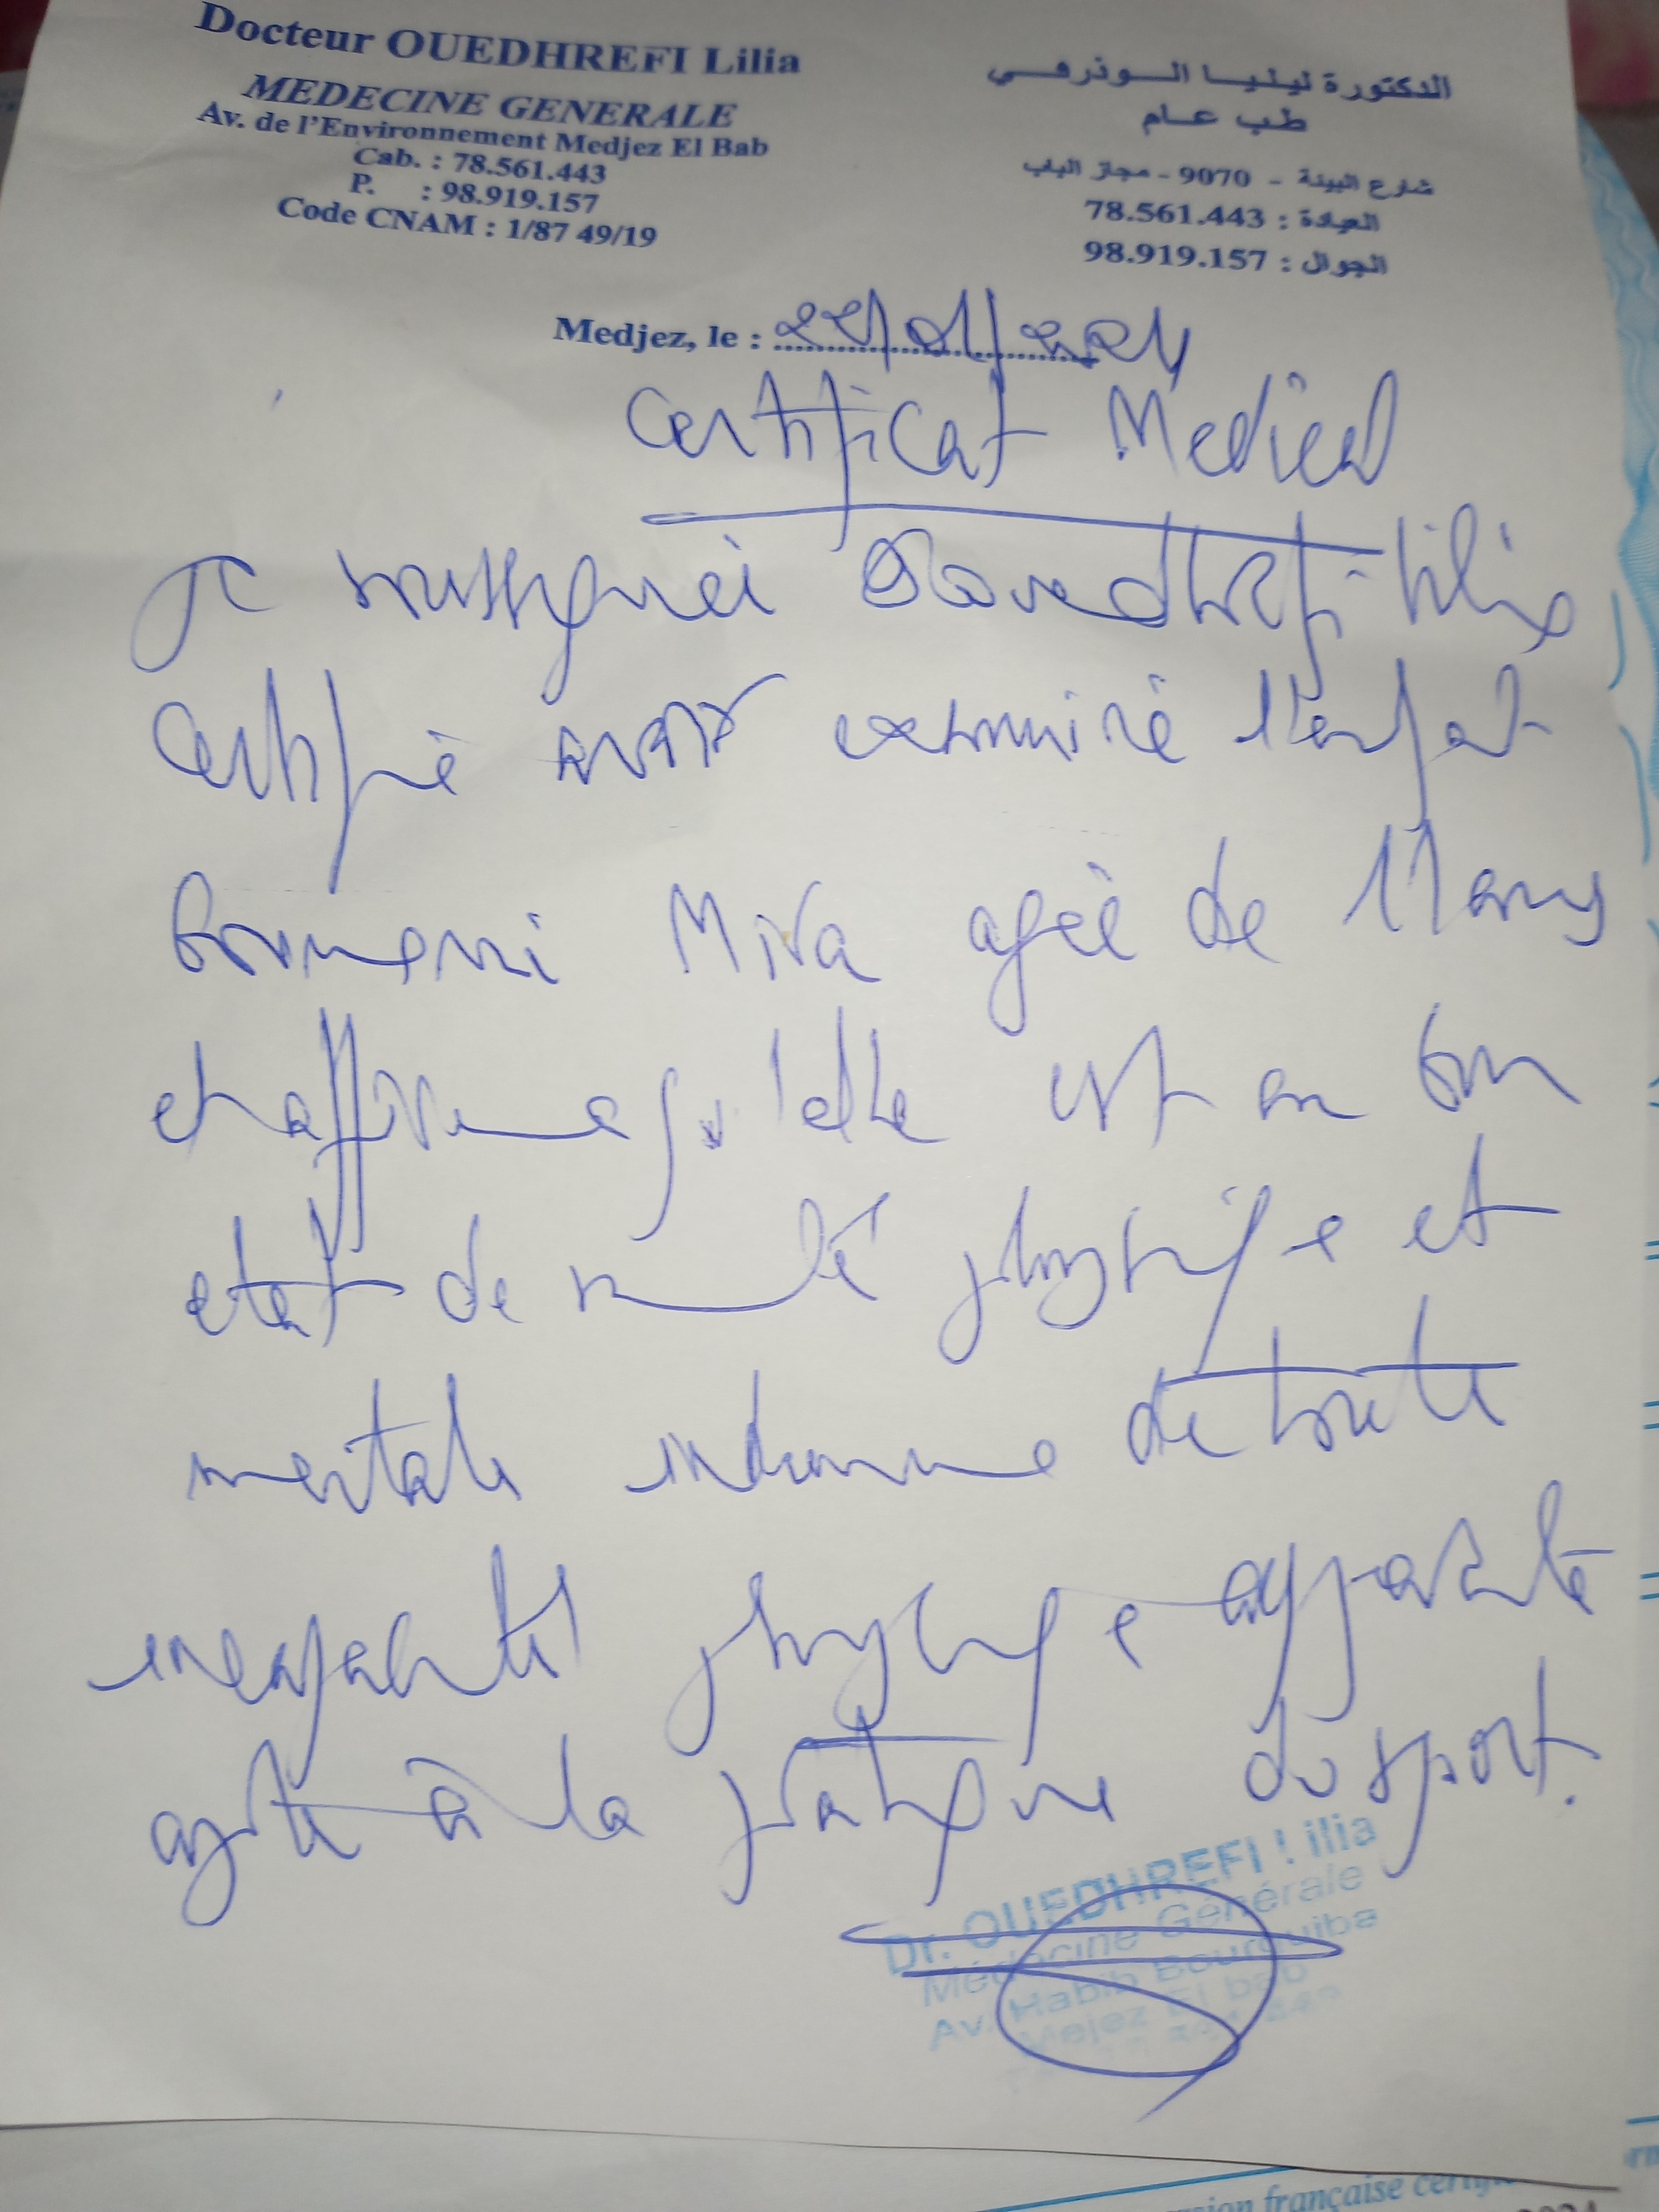 Docteur OUEDHREFI Lilia
MEDECINE GENERALE
Av. de l'Environnement Medjez El Bab
Cab. : 78.561.443
P. : 98.919.157
Code CNAM : 1/87 49/19
الدكتورة ليليا الوذرفي
طب عام
شارع البيئة - 9070 - مجاز الباب
العيادة : 78.561.443
الجوال : 98.919.157
Medjez, le :
Certificat Medical
Je soussigneé Ouedhrefi Lilia
Certifie avoir examiné l'enfant
Mira ageé de 11 ans
et affirme qu'elle est en bon
etat de santé physique et
mentale indemne de toute
physique apparente
apte à la pratique du sport.
Dr. OUEDHREFI Lilia
Médecine Générale
Av. Habib Bourguiba
Mejez El bab
sion française certif